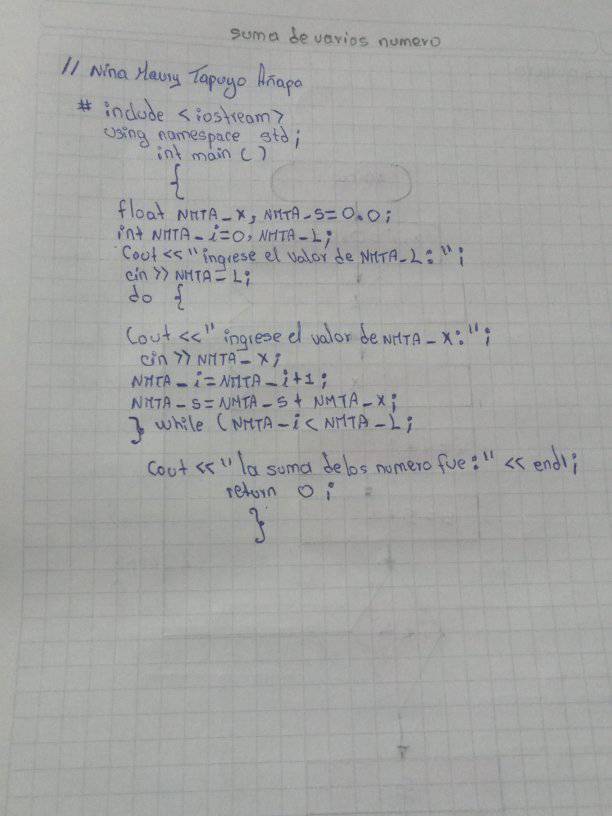 suma de varios numero
// Nina Maury Tapuyo Añapa
# include <iostream>
using namespace std;
int main ()
{
float NMTA_x, NMTA_s=0.0;
int NMTA_i=0, NMTA_L;
Cout <<"ingrese el valor de NMTA_L:";
cin >> NMTA=L;
do {
Cout <<" ingrese el valor de NMTA_x:";
cin >> NMTA_x;
NMTA_i=NMTA_i+1;
NMTA_s=NMTA_s+ NMTA_x;
} while (NMTA_i < NMTA_L;
Cout <<"la suma delos numero fue:" << endl;
return 0;
}